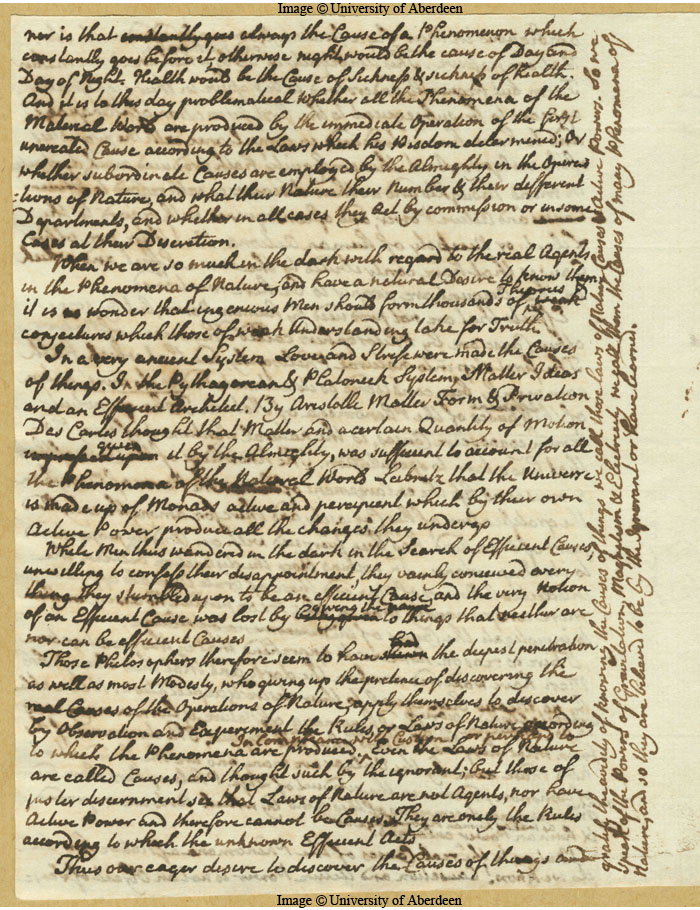 Image © University of Aberdeen
nor is that constantly goes always the Cause of a Phenomenon which
constantly goes before it, otherwise night would be the cause of Day and
Day of Night. Health would be the Cause of Sickness & sickness of health.
And it is to this day problematical whether all the Phenomena of the
Material World are produced by the immediate Operation of the first
uncreated Cause according to the Laws which his Wisdom determined; Or
whether subordinate Causes are employed by the Almighty in the Opera
tions of Nature, and what their Nature their Number & their different
Departments, and whether in all cases they Act by commission or in some
Cases at their Discretion.
When we are so much in the dark with regard to the real Agents
in the Phenomena of Nature, and have a natural Desire to know them
it is no wonder that ingenious Men should form thousands of Theories &
conjectures which those of weak Understanding take for Truth
In a very ancient System Love and Strife were made the Causes
of things. In the Pythagorean & Platonick System, Matter Ideas
and an Efficient Architect. By Aristotle Matter Form & Privation
Des Cartes thought that Matter and a certain Quantity of Motion
given it by the Almighty, was sufficient to account for all
the Phenomena of the Natural World Leibnitz that the Universe
is made up of Monads active and percipient which by their own
Active Power produce all the changes they undergo
While Men thus wandered in the dark in the Search of Efficient Causes,
unwilling to confess their disappointment, they vainly conceived every
thing they stumbled upon to be an efficient Cause, and the very Notion
of an Efficient Cause was lost by giving the name to things that neither are
nor can be efficient Causes
Those Philosophers therefore seem to have had the deepest penetration
as well as most Modesty, who giving up the pretence of discovering the
real Causes of the Operations of Nature, apply themselves to discover
by Observation and Experiment the Rules, or Laws of Nature according
to which the Phenomena are produced. Even the Laws of Nature
In Compliance with Custom or perhaps to
are called Causes, and thought such by the ignorant; but those of
juster discernment see that Laws of Nature are not Agents, nor have
Active Power and therefore cannot be Causes. They are onely the Rules
according to which the unknown Efficient Acts
Thus our eager desire to discover the Causes of things and
gratify the avidity of knowing the Causes of things we call those laws of Nature Causes & Active Powers. So we
speak of the Powers of Gravitation, Magnetism & Electricity as the Causes of many Phenomena of
Nature, and so they are believed to be by the Ignorant or half learned.
Image © University of Aberdeen